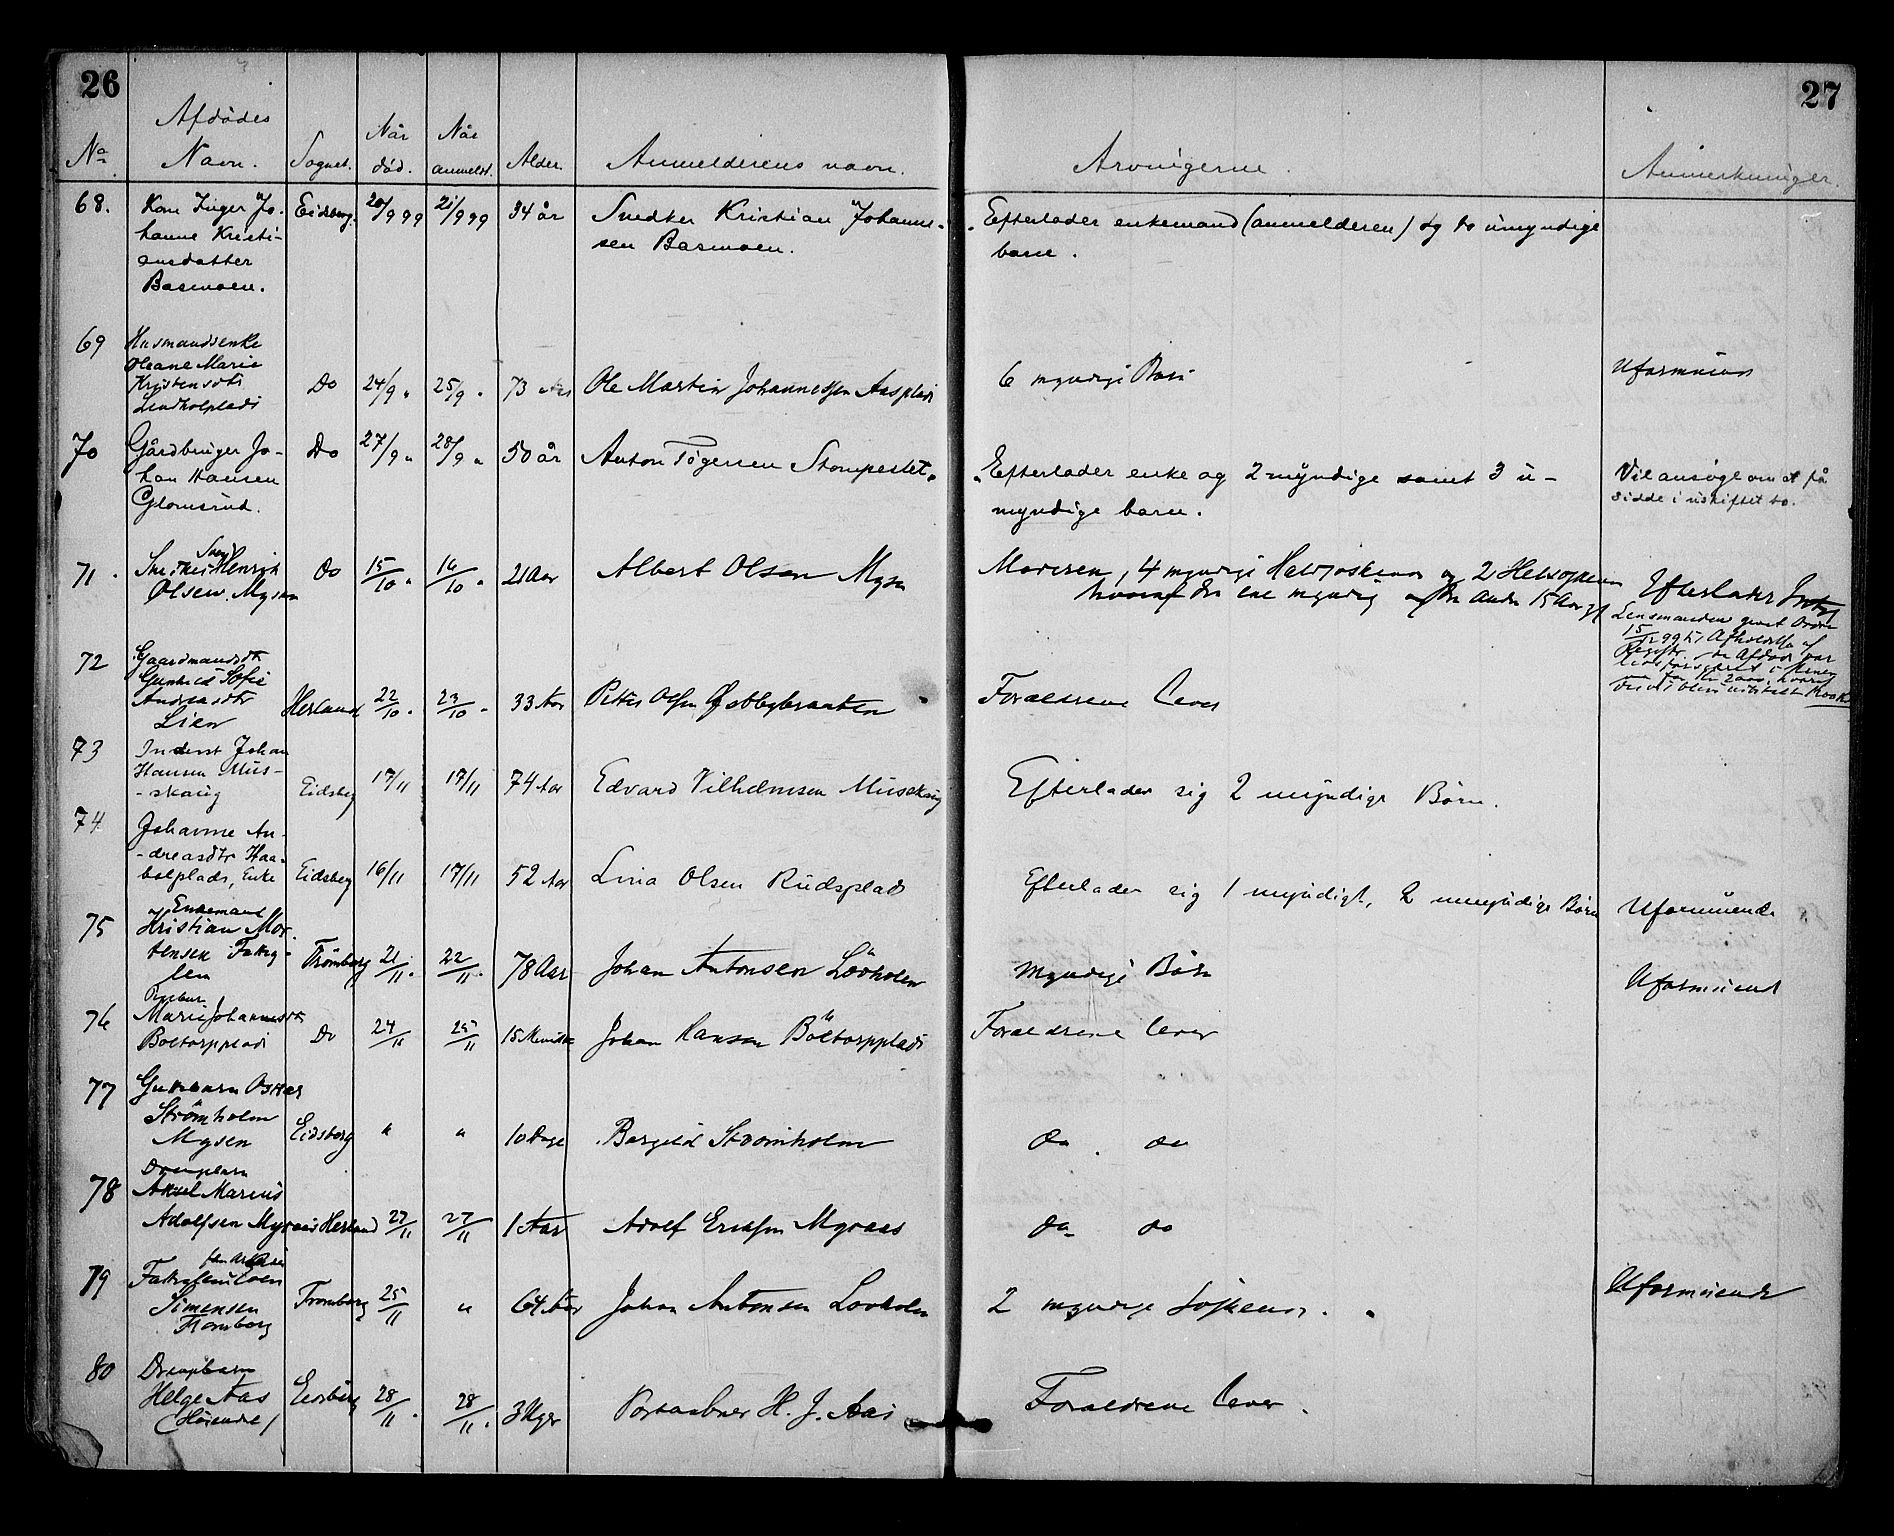 26
27
Afdödes
Navn.
No
Sognet.
Når
död.
Når
anmeldt.
Alder.
Anmelderens navn.
Arvingerne.
Anmerkninger.
68.
Kone Inger Jo-
hanne Kristi-
ansdatter
Basmoen.
Eidsberg.
20/9 99
21/9 99
34 år
Snedker Kristian Johanne-
sen Basmoen.
Efterlader enkemand (anmelderen) og to umyndige
barn.
69
Husmandsenke
Oleane Marie
Kristensdtr
Lindholplads
Do
24/9 "
25/9 "
73 Aar
Ole Martin Johannessen Aasplads
6 myndige Børn
Uformuende
70
Gårdbruger Jo-
han Hansen
Glomsrud.
Do
27/9 "
28/9 "
50 år
Anton Tøgersen Stompestet.
Efterlader enke og 2 myndige samt 3 u-
myndige barn.
Vil ansøge om at få
sidde i uskiftet bo.
71.
Snedker Henrik
Olsen Mysen
Do
15/10 "
16/10 "
21 Aar
Albert Olsen Mysen
Moderen, 4 myndige Halvsøskende og 2 Helsøskende
hvoraf den ene myndig og den anden 15 Aar gl
Efterlader
Lensmanden givet Ordre
72
Gaardmandsdtr
Gunhild Sofie
Andreasdtr
Lien
Herland
22/10 "
23/10 "
33 Aar
Peter Olsen
Forældrene lever
73
Inderst Johan
Hansen Mus-
-skaug
Eidsberg
17/11
17/11
74 Aar
Edvard Vilhelmsen Musskaug
Efterlader sig 2 myndige Børn.
74
Johanne An-
-dreasdtr Haa-
bølplads, Enke
Eidsberg
16/11
17/11
52 Aar
Lina Olsen Rudsplads
Efterlader sig 1 myndigt, 2 umyndige Børn
Uformuende
75
Enkemand
Kristian Mor-
tensen Fattig-
lem
Trömborg
21/11.
22/11.
78 Aar
Johan Antonsen Lövholen
Myndige Børn
Uformuende
76
Pigebarn
Marie Johannesdtr
Böltorpplads
Do
24/11
25/11
15 Maaneder
Johan Hansen Böltorpplads
Forældrene lever
77
Guttebarn Oskar
Strömholm
Mysen
Eidsberg
"
"
10 Dage
Bergild Strömholm
do. do
78
Drengebarn
Aksel Marius
Adolfsen Myraas
Herland
27/11
27/11
1 Aar
Adolf Eriksen Myraas
do do
79
Fattiglem
Simensen
Tromborg
Tromborg
25/11
"
64 Aar
Johan Antonsen Lovholen
2 myndige Søskende.
Uformuende
80
Drengebarn
Helge Aas
Eidsberg
28/11.
28/11.
3 Uger
Postaabner H. J. Aas
Forældrene lever.